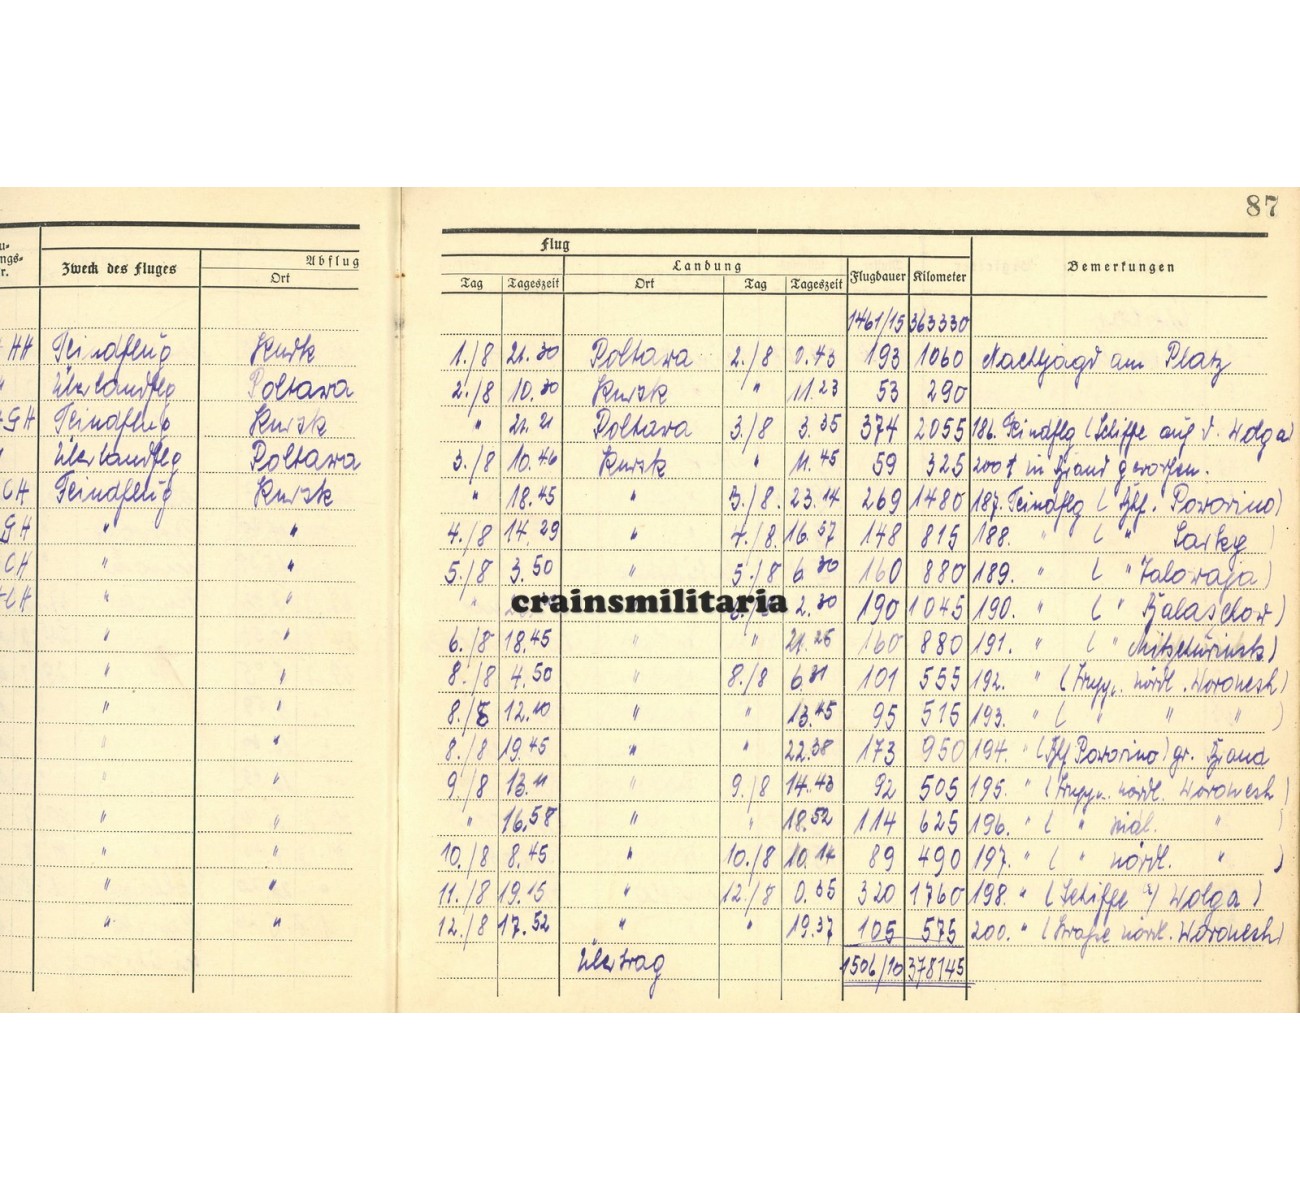 87
Flug
Zweck des Fluges
Abflug
Landung
Flugdauer
Kilometer
Bemerkungen
Ort
Tag
Tageszeit
Ort
Tag
Tageszeit
1461/15 363330
HH Feindflug Kursk 1./8 21.30 Poltawa 2./8 0.43 193 1060 Nachtjagd am Platz
" Überlandflg Poltawa 2./8 10.30 Kursk " 11.23 53 290
GH Feindflug Kursk " 21.21 Poltawa 3./8 3.35 374 2055 186. Feindflg (Schiffe auf d. Wolga)
Überlandflg Poltawa 3./8 10.46 Kursk " 11.45 59 325 200t in Brand geworfen.
CH Feindflug Kursk " 18.45 " 3./8. 23.14 269 1480 187. Feindflg (Bhf. Poworino)
GH " " 4./8 14.29 " 4./8. 16.57 148 815 188. " ( "
CH " " 5./8 3.50 " 5./8 6.30 160 880 189. " ( " )
" " " 2.30 190 1045 190. " ( " Balaschow)
crainsmilitaria
" " 6./8 18.45 " " 21.25 160 880 191. " ( " Mitschurinsk)
" " 8./8 4.50 " 8./8 6.31 101 555 192. " ( nördl. Woronesh)
" " 8./8 12.10 " " 13.45 95 515 193. " ( " " " )
" " 8./8 19.45 " " 22.38 173 950 194. " (Bhf Poworino) gr. Brand
" " 9./8 13.11 " 9./8 14.43 92 505 195. " ( nördl. Woronesh)
" " " 16.58 " " 18.52 114 625 196. " ( " " )
" " 10./8 8.45 " 10./8 10.14 89 490 197. " ( " nördl. " )
" " 11./8 19.15 " 12./8 0.35 320 1760 198. " (Schiffe a/ Wolga)
" " 12./8 17.52 " " 19.37 105 575 200. " (Straße nördl. Woronesh)
Übertrag 1506/10 378145